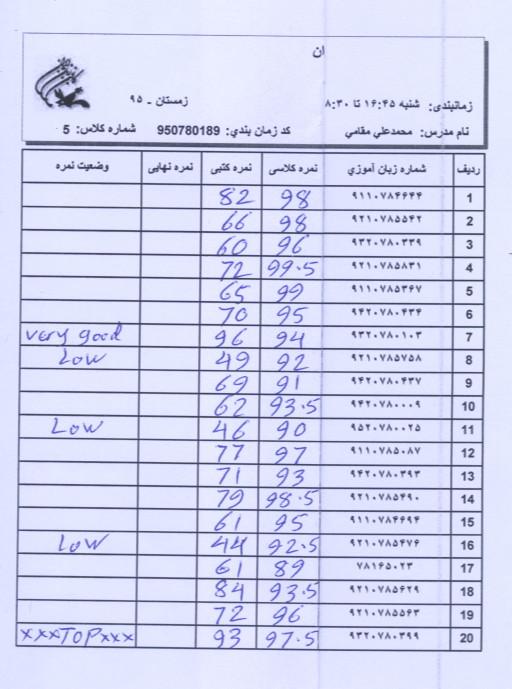 ان
زمانبندی: شنبه ۱۶:۴۵ تا ۸:۳۰ زمستان - ۹۵
نام مدرس: محمدعلي مقامي کد زمان بندي: 950780189 شماره کلاس: 5
ردیف شماره زبان آموزي نمره کلاسی نمره کتبی نمره نهایی وضعیت نمره
1 ۹۱۱۰۷۸۴۶۴۴ 98 82
2 ۹۲۱۰۷۸۵۵۴۲ 98 66
3 ۹۳۲۰۷۸۰۳۳۹ 96 60
4 ۹۲۱۰۷۸۵۸۳۱ 99.5 72
5 ۹۱۱۰۷۸۵۳۶۷ 99 65
6 ۹۴۲۰۷۸۰۴۳۴ 95 70
7 ۹۳۲۰۷۸۰۱۰۳ 94 96 very good
8 ۹۲۱۰۷۸۵۷۵۸ 92 49 Low
9 ۹۴۲۰۷۸۰۴۳۷ 91 69
10 ۹۴۲۰۷۸۰۰۰۹ 93.5 62
11 ۹۵۲۰۷۸۰۰۲۵ 90 46 Low
12 ۹۱۱۰۷۸۵۰۸۷ 97 77
13 ۹۴۲۰۷۸۰۳۹۳ 93 71
14 ۹۲۱۰۷۸۵۴۹۰ 98.5 79
15 ۹۱۱۰۷۸۴۶۹۴ 95 61
16 ۹۲۱۰۷۸۵۴۷۶ 92.5 44 Low
17 ۷۸۱۶۵۰۲۳ 89 61
18 ۹۲۱۰۷۸۵۶۲۹ 93.5 84
19 ۹۲۱۰۷۸۵۵۶۳ 96 72
20 ۹۳۲۰۷۸۰۳۹۹ 97.5 93 xxxTOPxxx